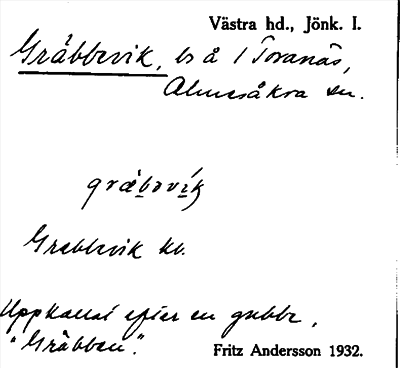 Västra hd., Jönk. l.
Gräbbevik, ls å 1 Toranäs,
Almesåkra sn.
gräbəvík
Grabbevik kb.
Uppkallat efter en gubbe,
"Gräbben".
Fritz Andersson 1932.